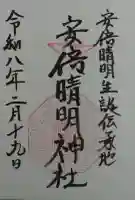 安倍晴明生誕伝承地
安倍晴明神社
令和八年二月十九日